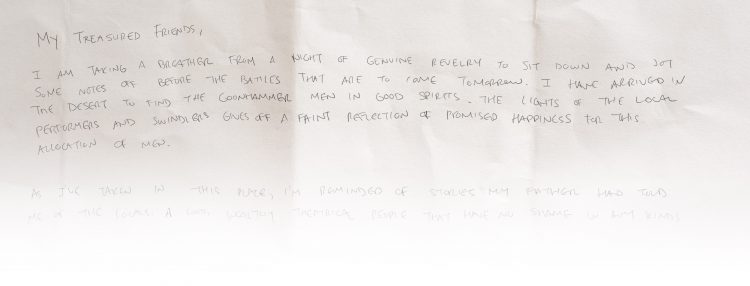 My Treasured Friends,
I am taking a breather from a night of genuine revelry to sit down and jot
some notes off before the battles that are to come tomorrow. I have arrived in
the desert to find the Goonhammer men in good spirits. The lights of the local
performers and swindlers gives off a faint reflection of promised happiness for this
allocation of men.
As I've taken in this place, I'm reminded of stories my father had told
me of the locals. A wealthy theatrical people that have no shame in